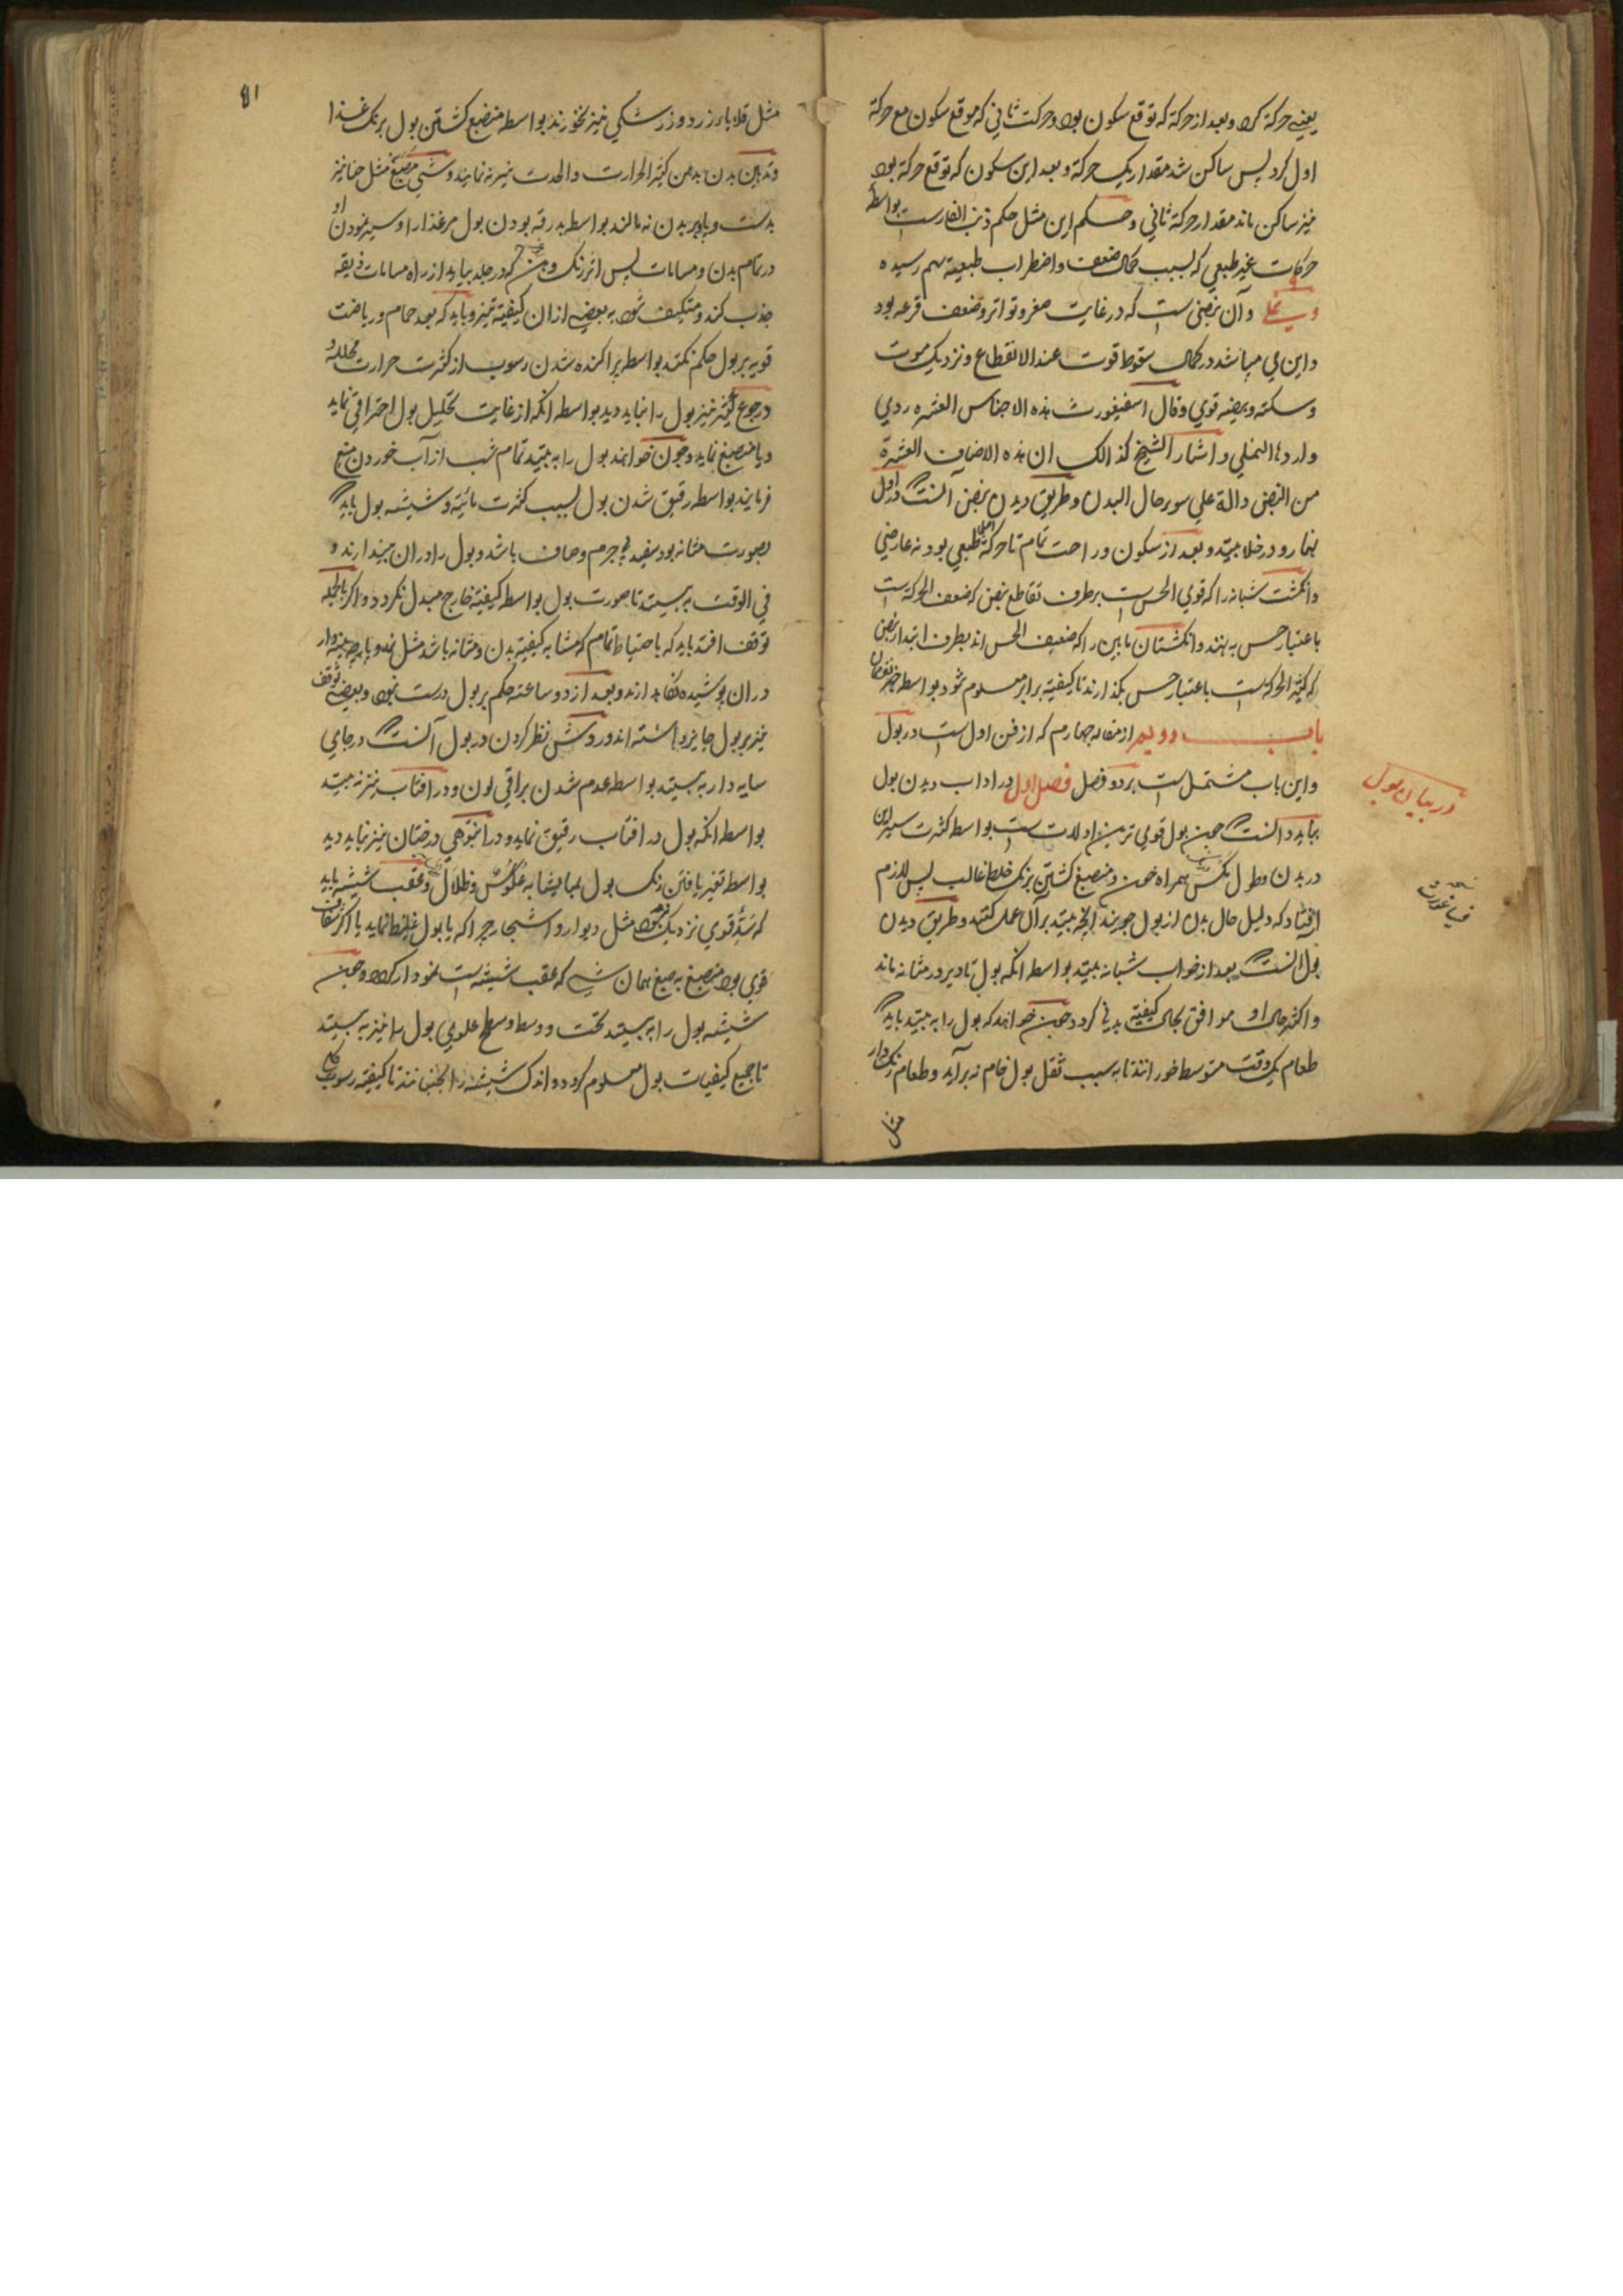 یعنے حرکة کرد و بعد از حرکة که توقع سکون بود و حرکت ثانی که موقع سکون مع حرکة
اول کرد پس ساکن شد مقدار یک حرکة و بعد این سکون که توقع حرکة بود
نیز ساکن ماند مقدار حرکة ثانی و حکم این مثل حکم ذنب الفارست بواسطه
حرکات غیر طبعی که بسبب کمال ضعف و اضطراب طبیعیة بهم رسیده
و آن نبضی ست که در غایت صغر و تواتر و ضعف قرعه بود
و این می میباشد در کمال سقوط قوت عند الانقطاع و نزدیک موت
و سکته و قوی و قال هذه الاجناس العشره ردی
و اردءها النملی و اشار الشیخ کذالک ان هذه الاصناف العشرة
من النبض دالة علی سوء حال البدن و طریق دیدن نبض آنست که اول
نهار و در خلا به بیند و بعد از سکون و راحت تمام تا حرکة اصلی طبعی بود نه عارضی
و انگشت شبانه را که قوی الحس ست بر طرف تقاطع نبض که ضعف الحرکة ست
باعتبار حس به نهند و انگشتان مابین را که ضعیف الحس اند بطرف ابتدار نبض
که کثیر الحرکة ست باعتبار حس بگذارند تا کیفیة برابر معلوم شود بواسطه نقصان
باب دویم از مقاله چهارم که از فن اول ست در بول
و این باب مشتمل ست بر دو فصل فصل اول در اداب دیدن بول
در بیان بول
بباید دانست که چون بول قوی ترین ادلات ست بواسطه کثرت سیر این
در بدن و طول مکث همراه خون و منصبغ گشتن برنگ خلط غالب پس لازم
افتاد که دلیل حال بدن از بول جویند انچه ببیند برآن عمل کنند و طریق دیدن
بول آنست که بعد از خواب شبانه ببیند بواسطه انکه بول تا دیر در مثانه ماند
و اکثر حال او موافق بحال کیفیة بدنی گردد چون خواهند که بول را به بینند باید که
طعام یک وقت متوسط خورانند تا بسبب ثقل بول خام نه برآید و طعام رنگ دار
مثل
۸۱
مثل قلاباء زرد و زرشکی نیز نخورند بواسطه منصبغ گشتن بول برنگ غذا
و تدهین بدن بدهن کثیر الحرارت و الحدت نیز نه نمایند و شی مصبغ مثل حنا نیز
بدست و پا و بر بدن نه مالند بواسطه بدرقه بودن بول مر غذا را و سیر نمودن او
در تمام بدن و مسامات پس اثر رنگ و دهن که در جلد بباید از راه مسامات ذیقه
جذب کند و متکیف شود به بعضے از ان کیفیة نیز و باید که بعد حمام و ریاضت
قویه بر بول حکم نکند بواسطه پراکنده شدن رسوب از کثرت حرارت محلله و
و رجوع کثیر نیز بول را نباید دید بواسطه انکه از غایت تحلیل بول احتراقی نماید
و یا منصبغ نماید و چون خواهند بول را به بینند تمام شب از آب خوردن منع
فرمایند بواسطه رقیق شدن بول بسبب کثرت مائیة و شیشه بول باید که
بصورت مثانه بود سفید بے جرم و صاف باشد و بول را دران میندارند و
فی الوقت به بینند تا صورت بول بواسطه کیفیة خارج مبدل نگردد و اگر بالجمله
توقف افتد باید که باحتیاط تمام که مشابه کیفیة بدن و مثانه باشد مثل نمد و پارچه پنبه دار
دران پوشیده نگاه دارند و بعد از دو ساعته حکم بر بول درست نبود و بعضے توقف
نیز بر بول جایز داشته اند و روش نظر کردن در بول آنست که در جای
سایه دار به بینند بواسطه عدم شدن براقی لون و در افتاب نیز نه بینند
بواسطه انکه بول در افتاب رقیق نماید و در انبوهی درختان نیز نباید دید
بواسطه تغیر یافتن رنگ بول بما یشابه عکوس و ظلال و عقب شیشه باید
که شئ قوی نزدیک نبود مثل دیوار و اشجار چرا که یا بول غلیظ نماید یا اگر شفاف
قوی بود منصبغ به صبغ همان شے که عقب شیشه ست نمودار گردد و چون
شیشه بول را به بینند تحت و وسط و سطح علوی بول را نیز به بینند
تا جمیع کیفیات بول معلوم گردد و اندک شیشه را بجنبانند تا کیفیة رسوب